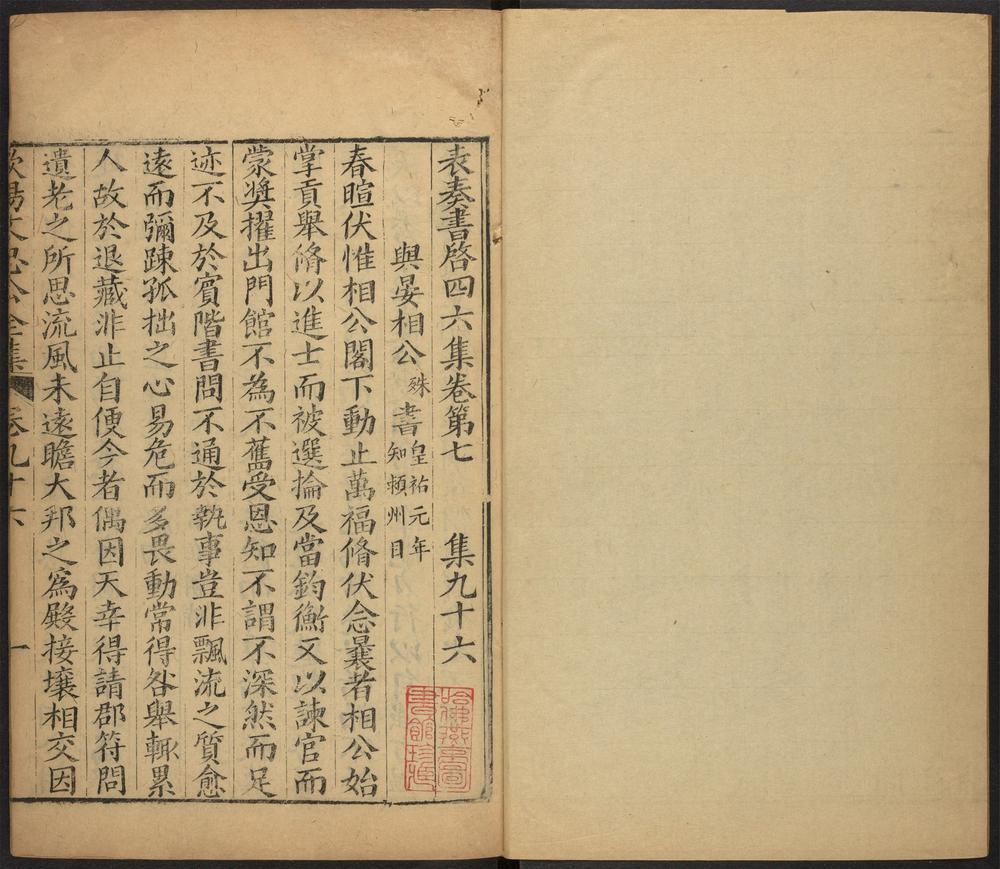 表奏書啓四六集卷第七 集九十六
與晏相公殊書皇祐元年知頴州日
春暄伏惟相公閣下動止萬福脩伏念曩者相公始
掌貢舉脩以進士而被選掄及當鈞衡又以諫官而
蒙奬擢出門館不為不舊受恩知不謂不深然而足
迹不及於賓階書問不通於執事豈非飄流之質愈
遠而彌踈孤拙之心易危而多畏動常得咎舉輒累
人故於退藏非止自便今者偶因天幸得請郡符問
遺老之所思流風未遠瞻大邦之為殿接壤相交因
歐陽文忠公全集 卷九十六 一
哈佛燕京圖書館珍藏